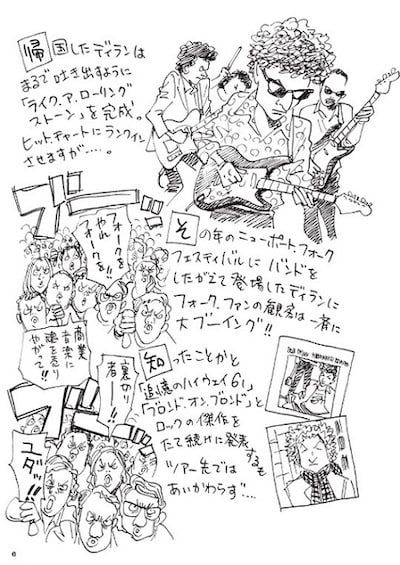 帰国したディランは
まるで吐き出すように
「ライク.ア.ローリング
ストーン」を完成。
ヒットチャートにランクイン
させますが……。
ブーッ
フォークを
やれ
フォークを!!
商業
音楽に
魂を売り
やがて!!
その年のニューポートフォーク
フェスティバルにバンドを
したがえて登場したディランに
フォーク.ファンの観客は一斉に
大ブーイング!!
知ったことかと
「追憶のハイウェイ61」
「ブロンド.オン.ブロンド」と
ロックの傑作を
たて続けに発表するも
ツアー先では
あいかわらず……
裏切り
者ー!!
ブーッ
ユダッ!!
6